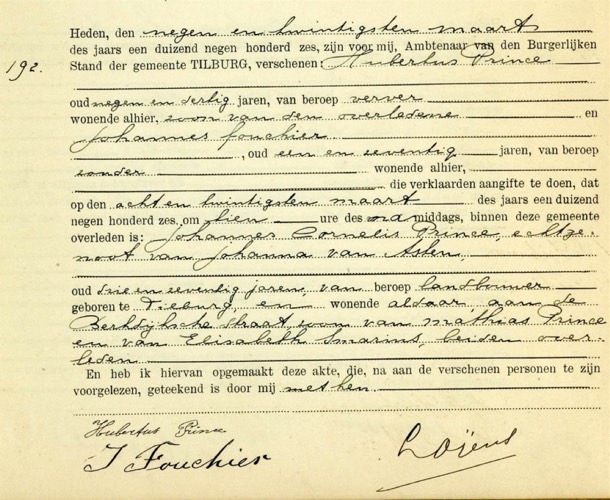 Heden, den negen en twintigsten maart
des jaars een duizend negen honderd zes, zijn voor mij, Ambtenaar van den Burgerlijken
192.
Stand der gemeente TILBURG, verschenen: Hubertus Prince
oud negen en dertig jaren, van beroep verver
wonende alhier, zoon van den overledene en
Johannes Fouchier
, oud een en zeventig jaren, van beroep
zonder wonende alhier,
die verklaarden aangifte te doen, dat
op den acht en twintigsten maart des jaars een duizend
negen honderd zes, om tien ure des middags, binnen deze gemeente
overleden is: Johannes Cornelis Prince, echtge-
noot van Johanna van Asten
oud drie en zeventig jaren, van beroep landbouwer
geboren te Tilburg, en wonende aldaar, aan de
Berkdijksche straat, zoon van Mathias Prince
en van Elisabeth Smarius, beiden over-
leden
En heb ik hiervan opgemaakt deze akte, die, na aan de verschenen personen te zijn
voorgelezen, geteekend is door mij met hen.
Hubertus Prince
J Fouchier